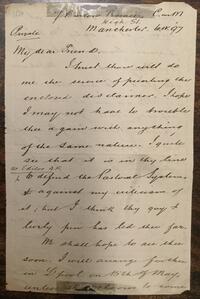 High St.
Private
Manchester
My dear Friend.
I trust thou will do
me the service of printing the
enclosed disclaimer. I hope
I may not have to trouble
thee again with anything
of the same nature. I quite
see that it is in thy line
as Editor
to defend the Pastoral System
& against my criticism of
it; but I think thy guy &
lively pen has led thee far.
We shall hope to see thee
soon. I will arrange for thee
in L'pool on 15th of May,
unless